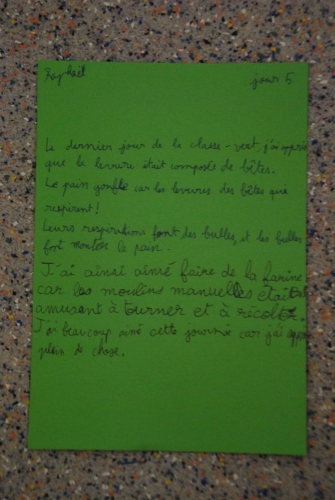 Raphaël
jour 5
Le dernier jour de la classe-vert, j'ai appris
que la levure était composée de bêtes.
Le pain gonfle car les levures des bêtes qui
respirent!
Leurs respirations font des bulles, et les bulles
font monter le pain.
J'ai ainsi aimé faire de la farine
car les moulins manuelles était
amusent à tourner et à
J'ai beaucoup aimé cette journée car j'ai appris
plein de chose.